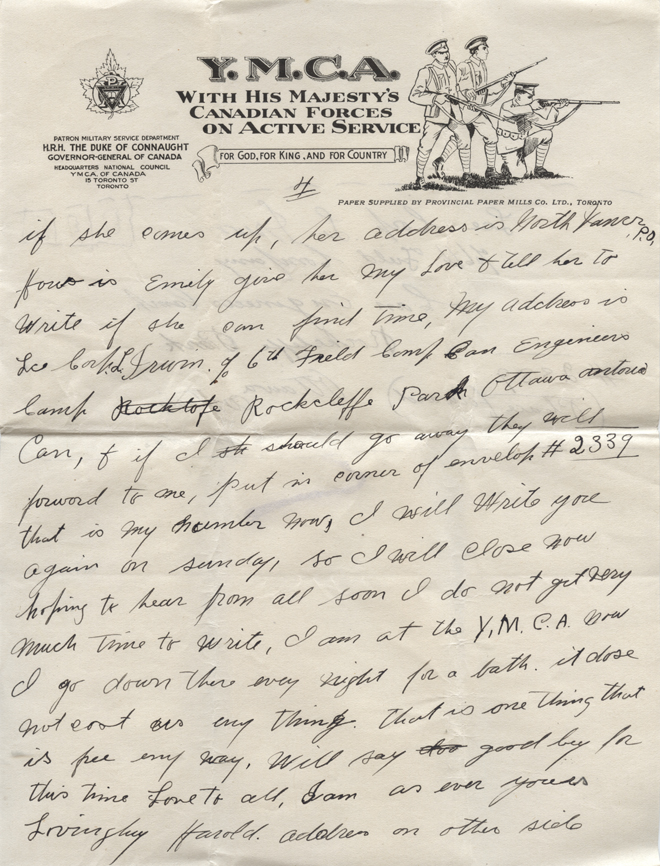 Y.M.C.A.
WITH HIS MAJESTY'S
CANADIAN FORCES
ON ACTIVE SERVICE
FOR GOD, FOR KING, AND FOR COUNTRY
PATRON MILITARY SERVICE DEPARTMENT
H.R.H. THE DUKE OF CONNAUGHT
GOVERNOR-GENERAL OF CANADA
HEADQUARTERS NATIONAL COUNCIL
Y.M.C.A. OF CANADA
15 TORONTO ST
TORONTO
PAPER SUPPLIED BY PROVINCIAL PAPER MILLS CO. LTD., TORONTO
4
if she comes up, her address is North Vancr, P.O,
Hows is Emily give her my Love & tell her to
Write if she can find time, My address is
Lce Corp. L, Irwin. % 6th Field Comp Can Engineers
Camp Rocktofe Rockcleffe Park Ottawa antorio
Can, & if I sh should go away they will
forword to me, put in corner of envelop # 2339
that is my number now, I will Write you
again on sunday, so I will close now
hoping to hear from all soon I do not get very
much time to write, I am at the Y,M.C.A. now
I go down there evey night for a bath. it dose
not cost us eny thing. that is one thing that
is free eny way, Will say good by for
this time Love to all, I am as ever yours
Lovingley Harold. address on other side